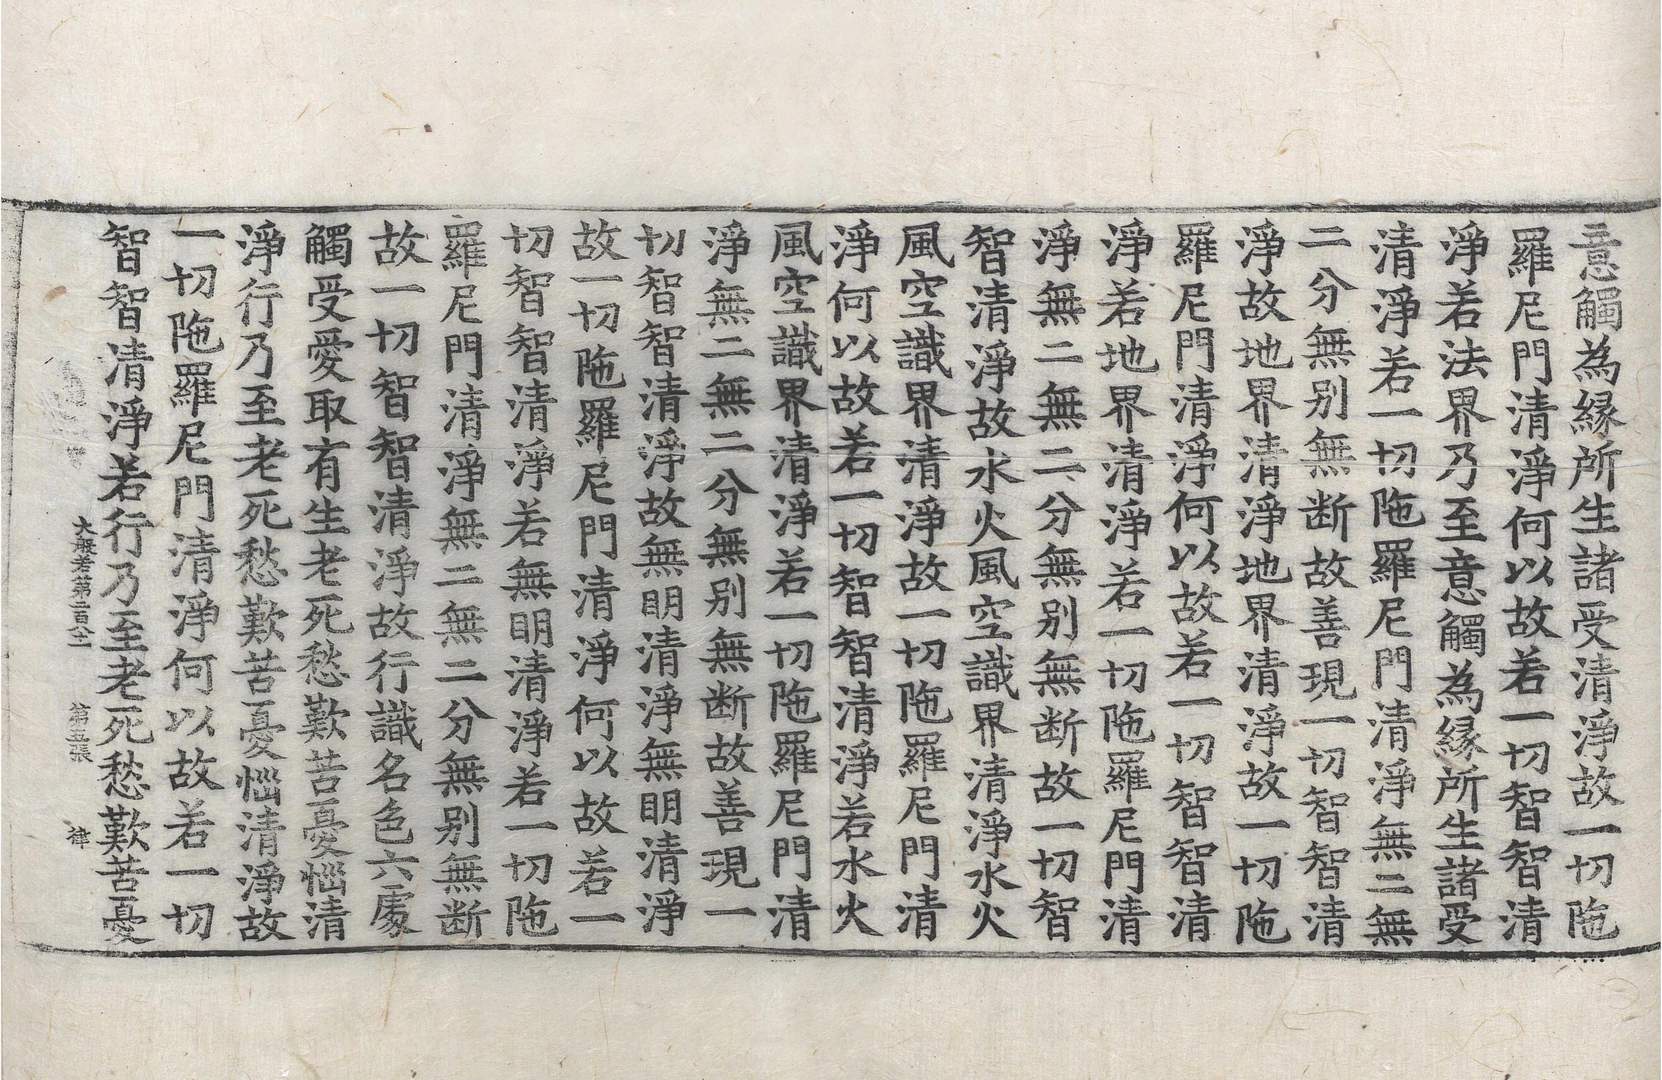 意觸為縁所生諸受清淨故一切陁
羅尼門清淨何以故若一切智智清
淨若法界乃至意觸為縁所生諸受
清淨若一切陁羅尼門清淨無二無
二分無别無断故善現一切智智清
淨故地界清淨地界清淨故一切陁
羅尼門清淨何以故若一切智智清
淨若地界清淨若一切陁羅尼門清
淨無二無二分無别無断故一切智
智清淨故水火風空識界清淨水火
風空識界清淨故一切陁羅尼門清
淨何以故若一切智智清淨若水火
風空識界清淨若一切陁羅尼門清
淨無二無二分無别無断故善現一
切智智清淨故無眀清淨無眀清淨
故一切陁羅尼門清淨何以故若一
切智智清淨若無眀清淨若一切陁
羅尼門清淨無二無二分無别無断
故一切智智清淨故行識名色六處
觸受愛取有生老死愁歎苦憂惱清
淨行乃至老死愁歎苦憂惱清淨故
一切陁羅尼門清淨何以故若一切
智智清淨若行乃至老死愁歎苦憂
大般若第二百八十一 第五張 律